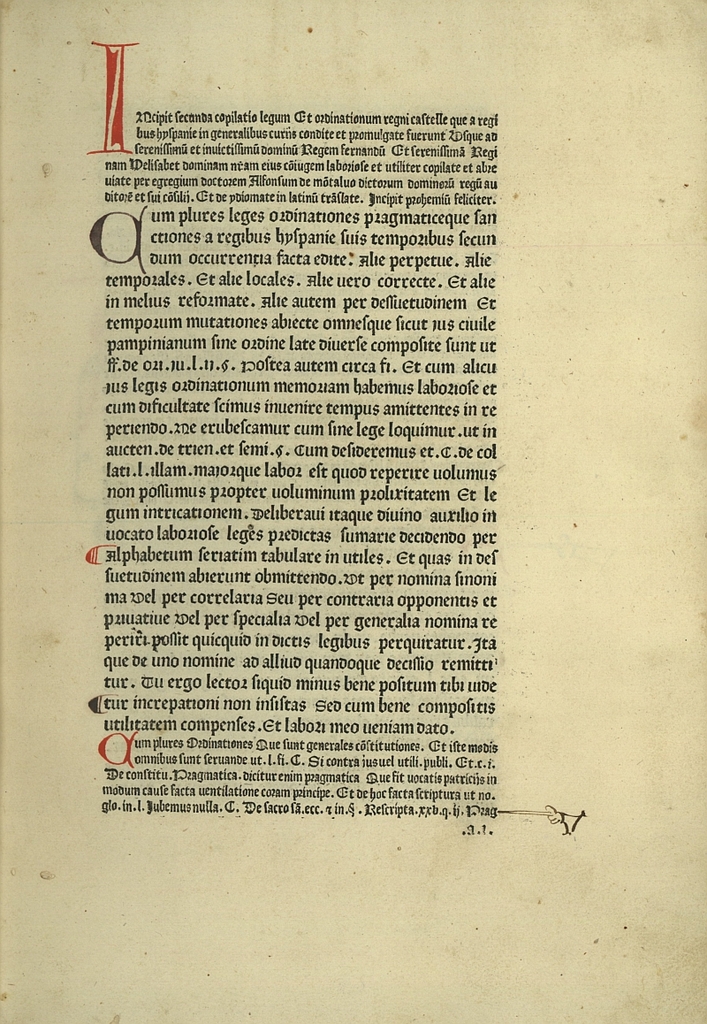 INcipit secunda cõpilatio legum Et ordinationum regni castelle que a regi
bus hyspanie in generalibus curiis condite et promulgate fuerunt Vsque ad
serenissimũ et inuictissimũ dominũ Regem fernandũ Et serenissimã Regi
nam Velisabet dominam nr̃am eius cõiugem laboriose et utiliter copilate et abre
uiate per egregium doctorem Alfonsum de mõtaluo dictorum dominorũ regũ au
ditorẽ et sui cõsilij. Et de ydiomate in latinũ trãslate. Incipit prohemiũ feliciter.
Cum plures leges ordinationes pragmaticeque san
ctiones a regibus hyspanie suis temporibus secun
dum occurrentia facta edite: Alie perpetue. Alie
temporales. Et alie locales. Alie uero correcte. Et alie
in melius reformate. Alie autem per dessuetudinem Et
temporum mutationes abiecte omnesque sicut ius ciuile
pampinianum sine ordine late diuerse composite sunt ut
ff.de ori.iu.l.ii.§. postea autem circa fi. Et cum alicu
ius legis ordinationum memoriam habemus laboriose et
cum dificultate scimus inuenire tempus amittentes in re
periendo. Ne erubescamur cum sine lege loquimur. ut in
aucten.de trien.et semi.§. Cum desideremus et.C.de col
lati.l.illam. maiorque labor est quod reperire uolumus
non possumus propter uoluminum prolixitatem Et le
gum intricationem. Deliberaui itaque diuino auxilio in
uocato laboriose leges predictas sumarie decidendo per
Alphabetum seriatim tabulare in utiles. Et quas in des
suetudinem abierunt obmittendo. Vt per nomina sinoni
ma Vel per correlaria Seu per contraria opponentis et
priuatiue Vel per specialia Vel per generalia nomina re
periri possit quicquid in dictis legibus perquiratur. Ita
que de uno nomine ad alliud quandoque decissio remitti
tur. Tu ergo lector siquid minus bene positum tibi uide
tur increpationi non insistas Sed cum bene compositis
utilitatem compenses. Et labori meo ueniam dato.
Cum plures Ordinationes Que sunt generales cõstitutiones. Et iste modis
omnibus sunt seruande ut.l.fi.C. Si contra ius uel utili.publi. Et.c.i.
De constitu. Pragmatica. dicitur enim pragmatica Que fit uocatis patriciis in
modum cause facta uentilatione coram principe. Et de hoc facta scriptura ut no.
glo.in.l. Iubemus nulla. C. De sacro sã.ecc. ⁊ in.§. Rescripta.xxv.q.ij. Prag
.a.i.